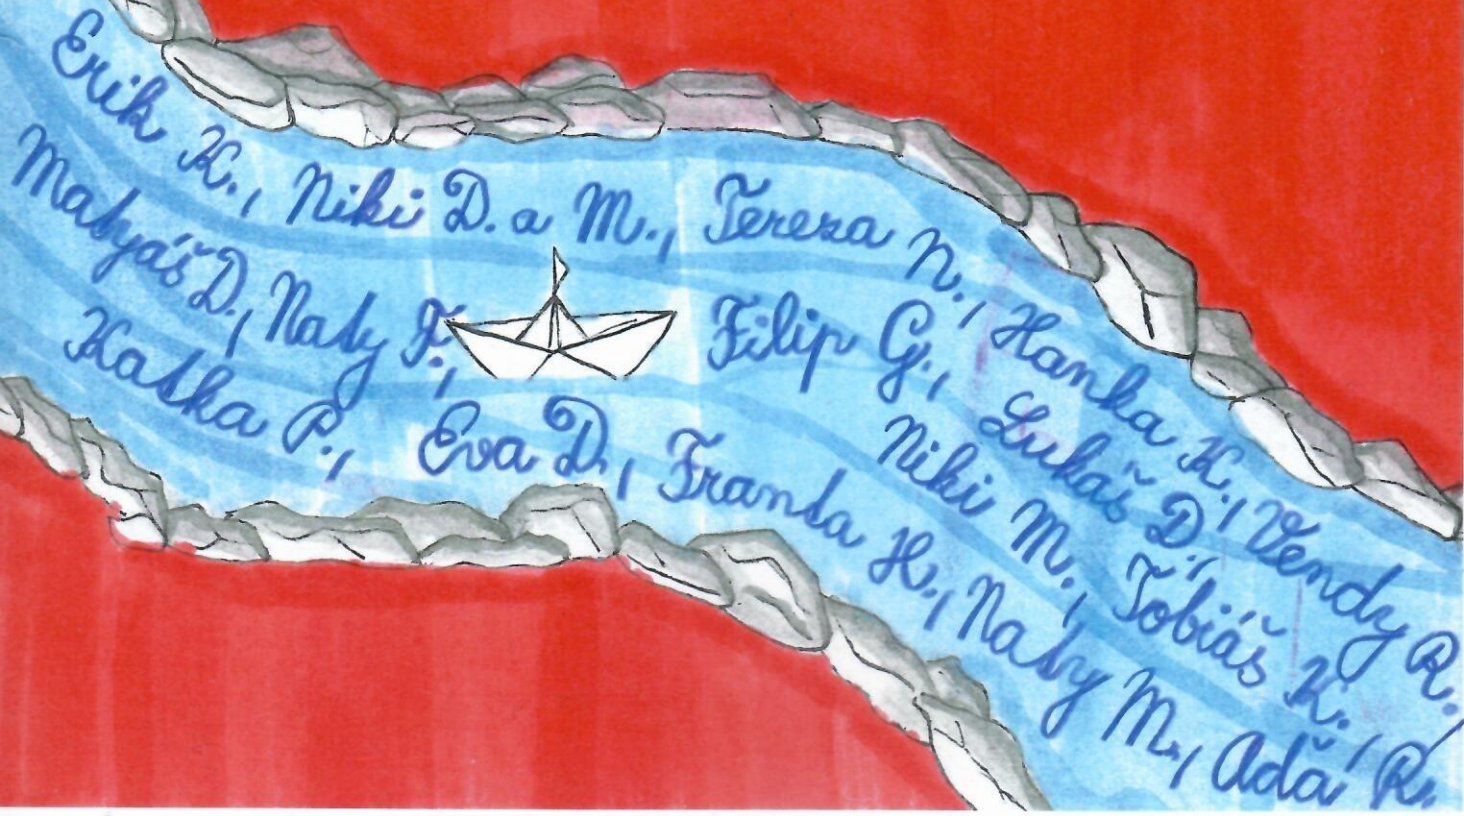 Erik K., Niki D. a M., Tereza N., Hanka K., Vendy R.,
Matyáš D., Naty F., Filip G., Lukáš D., Tobiáš K.,
Katka P., Eva D., Franta H., Niki M., Naty M., Áďa R.